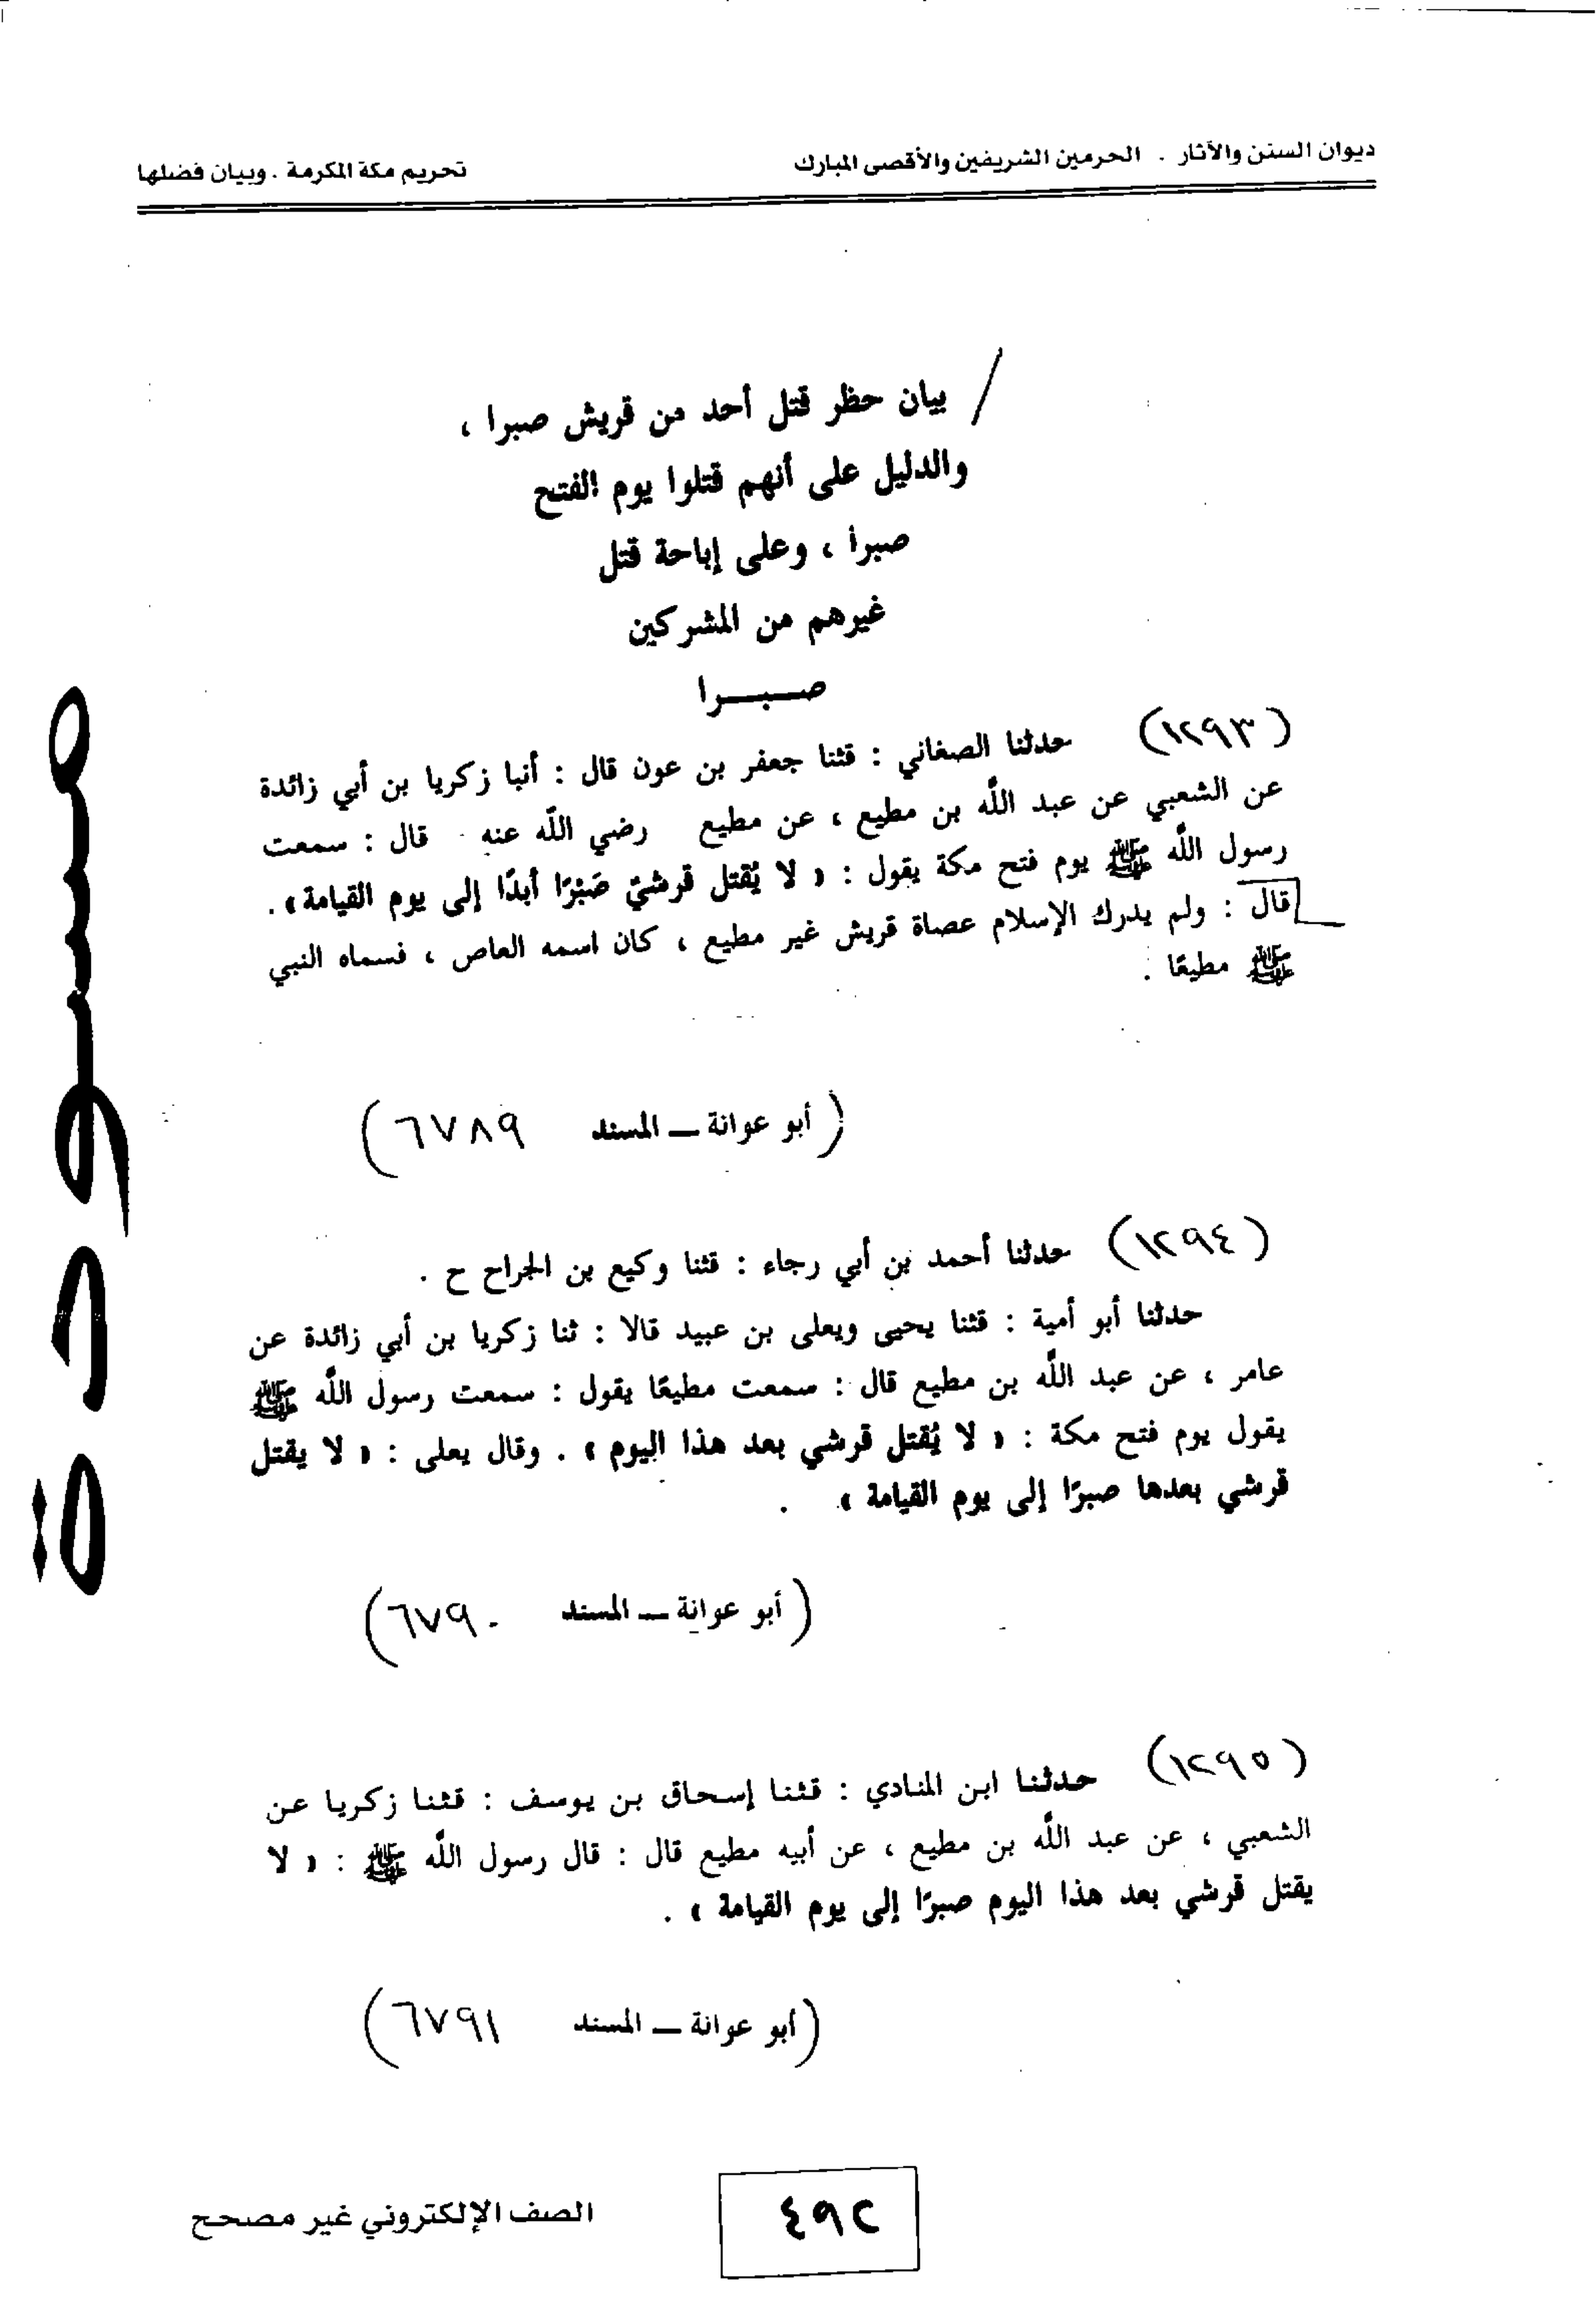 ديوان السنن والآثار . الحرمين الشريفين والأقصى المبارك
تحريم مكة المكرمة . وبيان فضلها
/ بيان حظر قتل أحد من قريش صبرا ،
والدليل على أنهم قتلوا يوم الفتح
صبرا ، وعلى إباحة قتل
غيرهم من المشركين
صبـــرا
(١٢٩٣) حدثنا الصغاني : قثنا جعفر بن عون قال : أنبا زكريا بن أبي زائدة
عن الشعبي عن عبد الله بن مطيع ، عن مطيع رضي الله عنه قال : سمعت
رسول الله ﷺ يوم فتح مكة يقول : « لا يُقتل قرشيّ صَبْرًا أبدًا إلى يوم القيامة » .
قال : ولم يدرك الإسلام عصاة قريش غير مطيع ، كان اسمه العاص ، فسماه النبي
ﷺ مطيعًا .
(أبو عوانة ــ المسند ٦٧٨٩)
(١٢٩٤) حدثنا أحمد بن أبي رجاء : قثنا وكيع بن الجراح ح .
حدثنا أبو أمية : قثنا يحيى ويعلى بن عبيد قالا : ثنا زكريا بن أبي زائدة عن
عامر ، عن عبد الله بن مطيع قال : سمعت مطيعًا يقول : سمعت رسول الله ﷺ
يقول يوم فتح مكة : « لا يُقتل قرشي بعد هذا اليوم » . وقال يعلى : « لا يقتل
قرشي بعدها صبرًا إلى يوم القيامة » .
(أبو عوانة ــ المسند ٦٧٩٠)
(١٢٩٥) حدثنا ابن المنادي : قثنا إسحاق بن يوسف : قثنا زكريا عن
الشعبي ، عن عبد الله بن مطيع ، عن أبيه مطيع قال : قال رسول الله ﷺ : « لا
يقتل قرشي بعد هذا اليوم صبرًا إلى يوم القيامة » .
(أبو عوانة ــ المسند ٦٧٩١)
٤٩٢
الصف الإلكتروني غير مصحح
مسودة